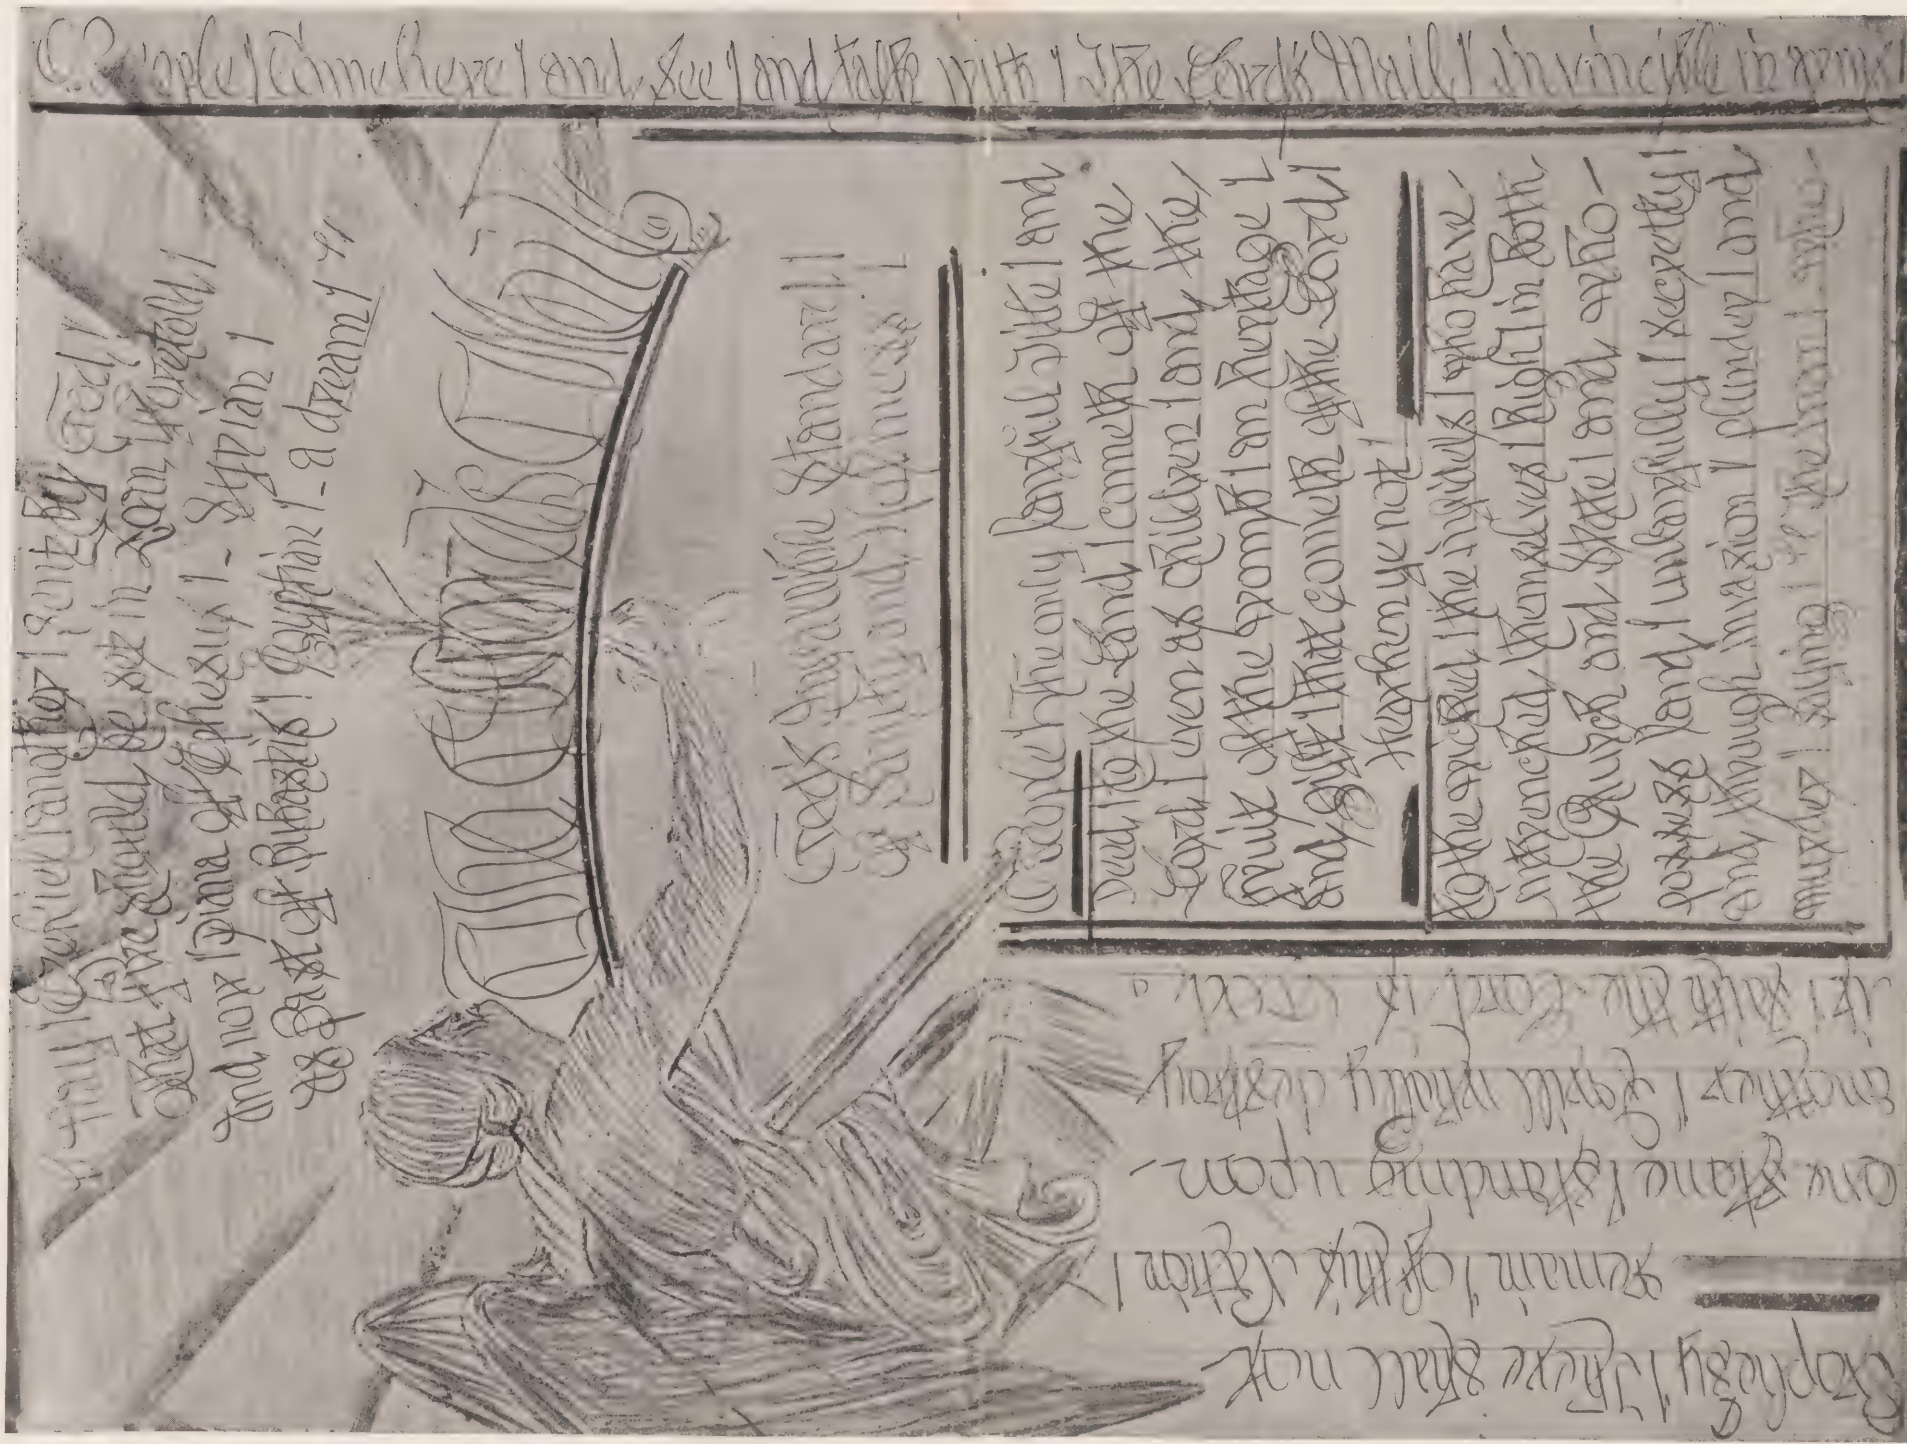 O People / Come here / and see / and talk with / The Lord's Mail / invincible in arms /
Ezekiel / another / sent by God /
That we should be set in foretold /
And not / Diana of Ephesus / - Syrian /
As Bast of Bubastis / Egyptian / - a dream /
God's Invisible Standard /
of Sanity and Holiness /
O people / The only lawful title / and
Deed / to the land / cometh of the
Lord / even as children / and the /
fruit of the womb / an heritage /
and gift / that cometh of the Lord /
Hearken ye not /
to the wicked / the infidels / who have -
intrenched themselves / high in both
the Church and State / and who -
possess land / unlawfully / secretly /
and through invasion / plunder / and
murder / saying /
Prophesy / There shall not
remain / of this Nation /
one stone / standing upon -
another / I will wholly destroy
it / saith the Lord is God.